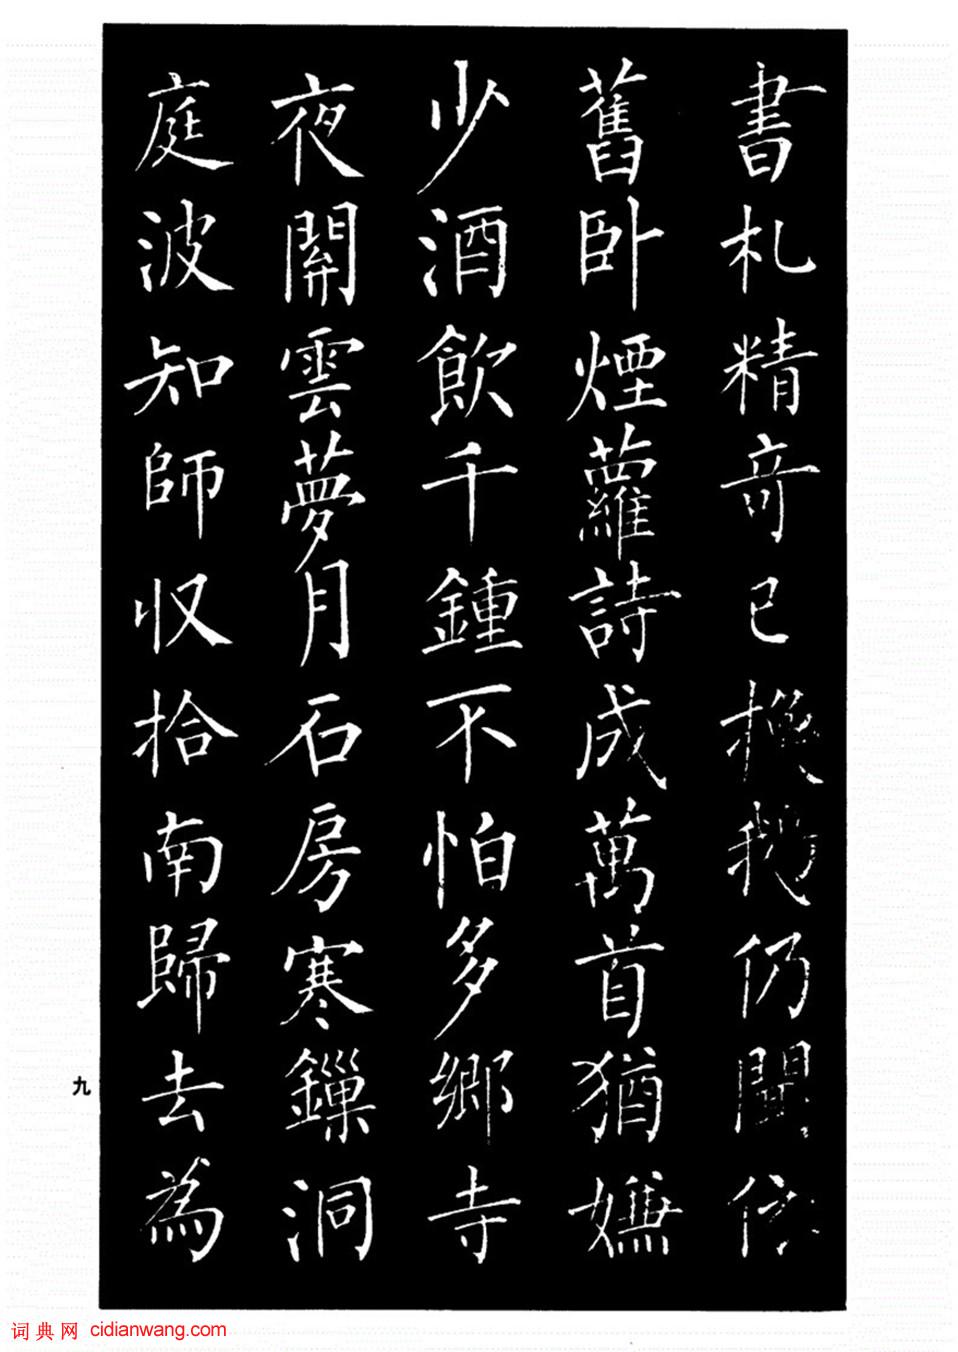 書札精竒已換鵝仍聞依
舊卧煙蘿詩成萬首猶嫌
少酒飲千鍾不怕多鄉寺
夜開雲夢月石房寒鏁洞
庭波知師収拾南歸去為
九
词典网 cidianwang.com